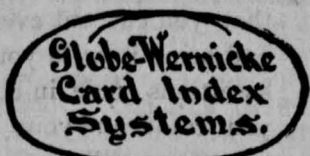 Globe-Wernicke
Card Index
Systems.